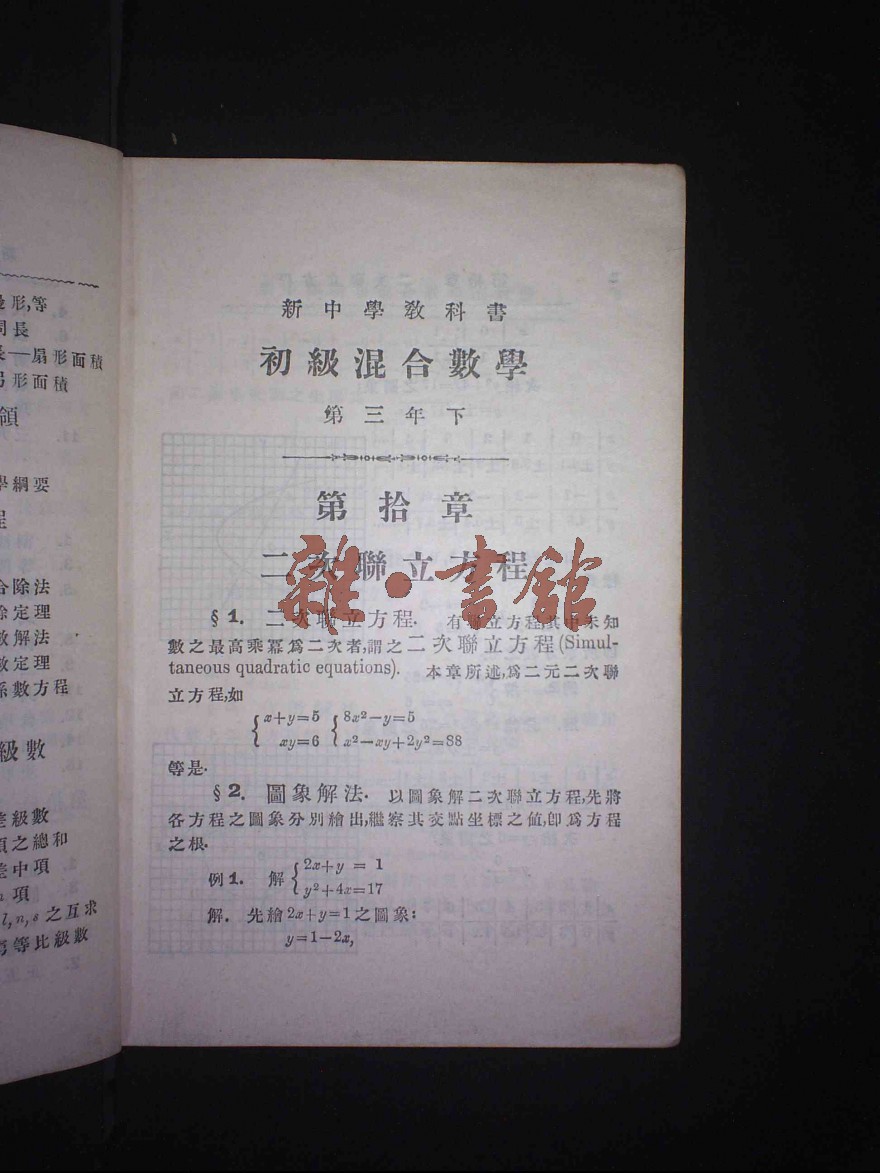 形,等
長
長—扇形面積
形面積
領
學綱要
程
合除法
除定理
數解法
數定理
係數方程
級數
差級數
項之總和
差中項
項
l,n,s之互求
等比級數
新中學敎科書
初級混合數學
第三年下
第拾章
二次聯立方程
雜·書館
§1. 二次聯立方程. 有聯立方程,其中未知
數之最高乘冪爲二次者,謂之二次聯立方程(Simul-
taneous quadratic equations). 本章所述,爲二元二次聯
立方程,如
{x+y=5 {8x²−y=5
xy=6 x²−xy+2y²=88
等是.
§2. 圖象解法. 以圖象解二次聯立方程,先將
各方程之圖象分別繪出,繼察其交點坐標之値,卽爲方程
之根.
例1. 解{2x+y = 1
y²+4x=17
解. 先繪2x+y=1之圖象:
y=1−2x,